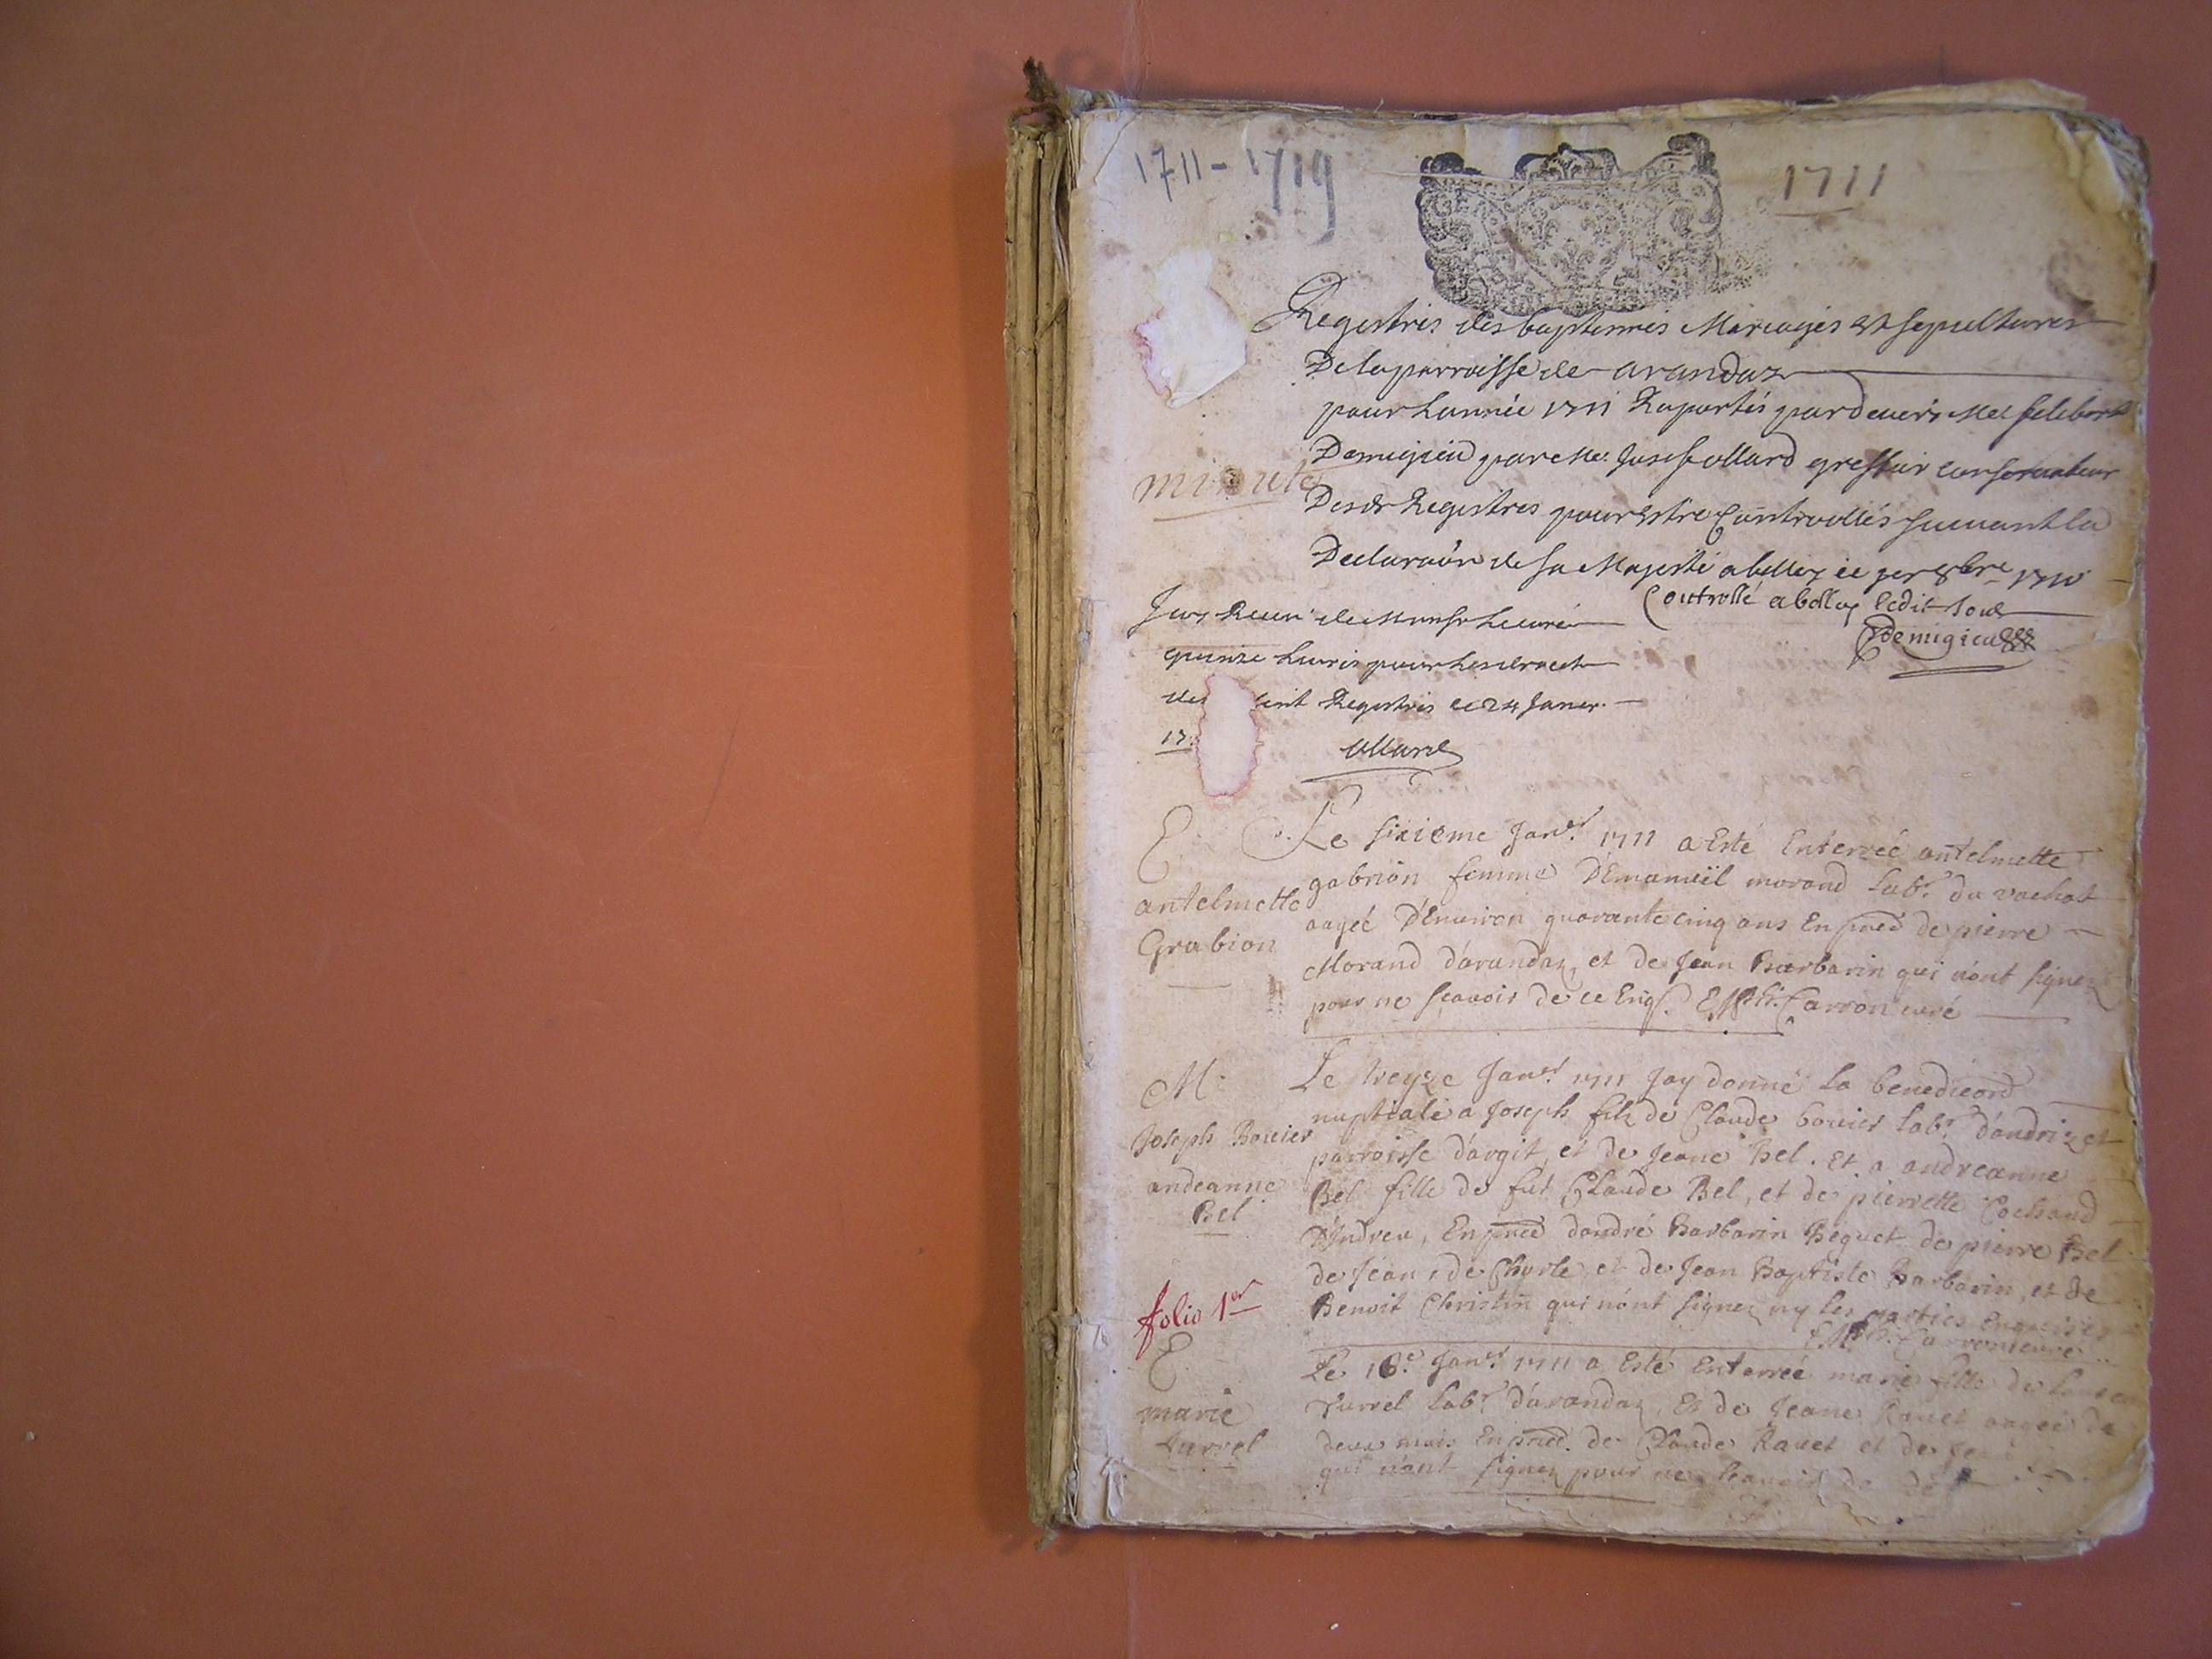 1711 - 1719
1711
Registres des baptesmes Mariages et sepultures
De la parroisse de arandaz
pour Lannée 1711 Raportés par devers Me
Demigieu par Me Josef allard greffier conservateur
Desd Registres pour Estre Controollés suivant la
Declaraon de sa Majesté a belley ce per 8bre 1710
minute
Controllé a belley Ledit Jour
Demigieu
Jay Receu de Monsr Le curé
quinze Livres pour Le droict
des Registres ce 24 Janer
17
allard
E
antelmette
Grabion
Le sixieme Janer 1711 a Esté Enterrée antelmette
gabrion femme D'Emanuël morand Labr du vachat
aagée D'Environ quarante cinq ans En pnce de pierre
Morand d'arandaz, et de Jean Barbarin qui n'ont signez
pour ne scavoir de ce Enqs. Carron curé
M
Joseph Bovier
andeanne
Bel
Le treyze Janer 1711 Jay donné la benediction
nuptiale a Joseph filz de Claude bovier labr d'andrizet
parroisse d'argit, et de Jeane Bel. Et a andreanne
Bel fille de fut Claude Bel, et de pierrette Cochand
D'Indrieu, En pnce dandré Barbarin Beguet de pierre Bel
de Jean, de Charle et de Jean Baptiste Barbarin, et de
Benoit Christin qui n'ont signez ny les parties Enquises
Carron curé
folio 1er
E
marie
turrel
Le 16e Janer 1711 a Esté Enterrée marie fille de
turrel labr d'arandaz, Et de Jeane Ravet aagée de
deux mois En pnce de Claude Ravet et de
qui n'ont signez pour ne scavoir de